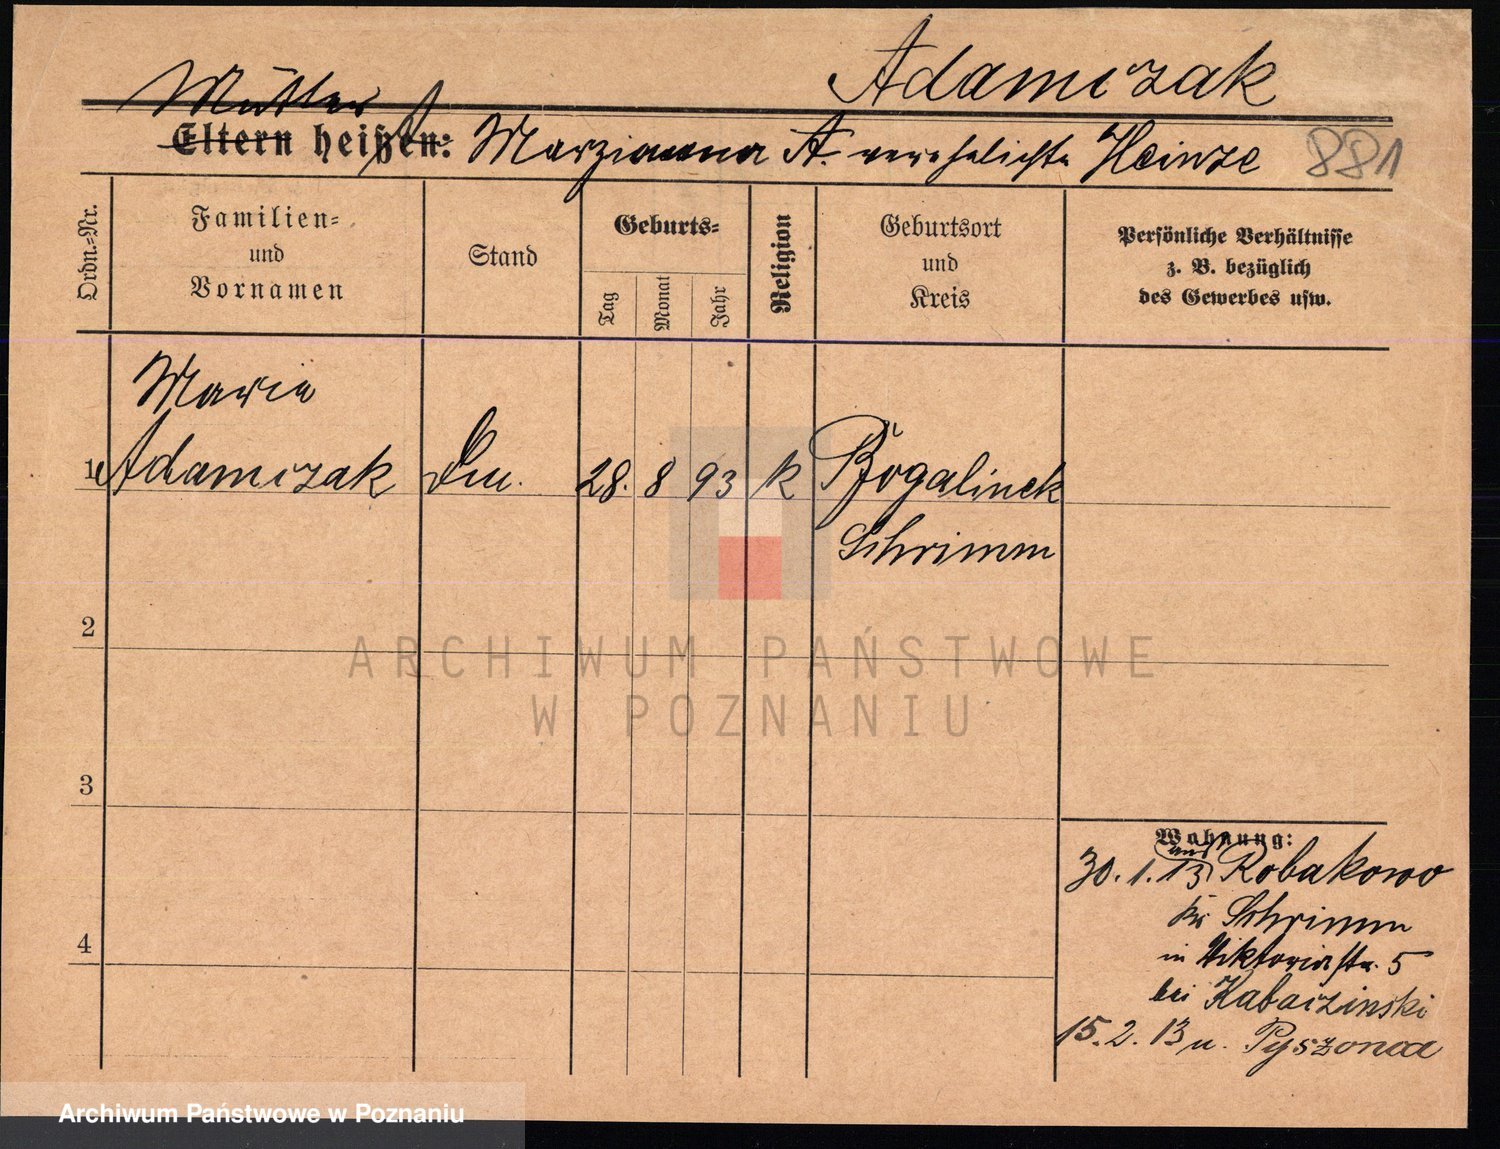 Adamczak
Mutter
Eltern heißen: Marzianna A. verehelichte Heinze 881
Ordn.=Nr.
Familien=
und
Vornamen
Stand
Geburts=
Tag
Monat
Jahr
Religion
Geburtsort
und
Kreis
Persönliche Verhältnisse
z. B. bezüglich
des Gewerbes usw.
Marie
1 Adamczak 28. 8 93 k Bogalinek
Schrimm
2
3
4
Wohnung:
30.1.13 aus Robakowo
Kr Schrimm
in Viktoriastr. 5
bei Kabaczinski
15.2.13 n.
ARCHIWUM PAŃSTWOWE
W POZNANIU
Archiwum Państwowe w Poznaniu